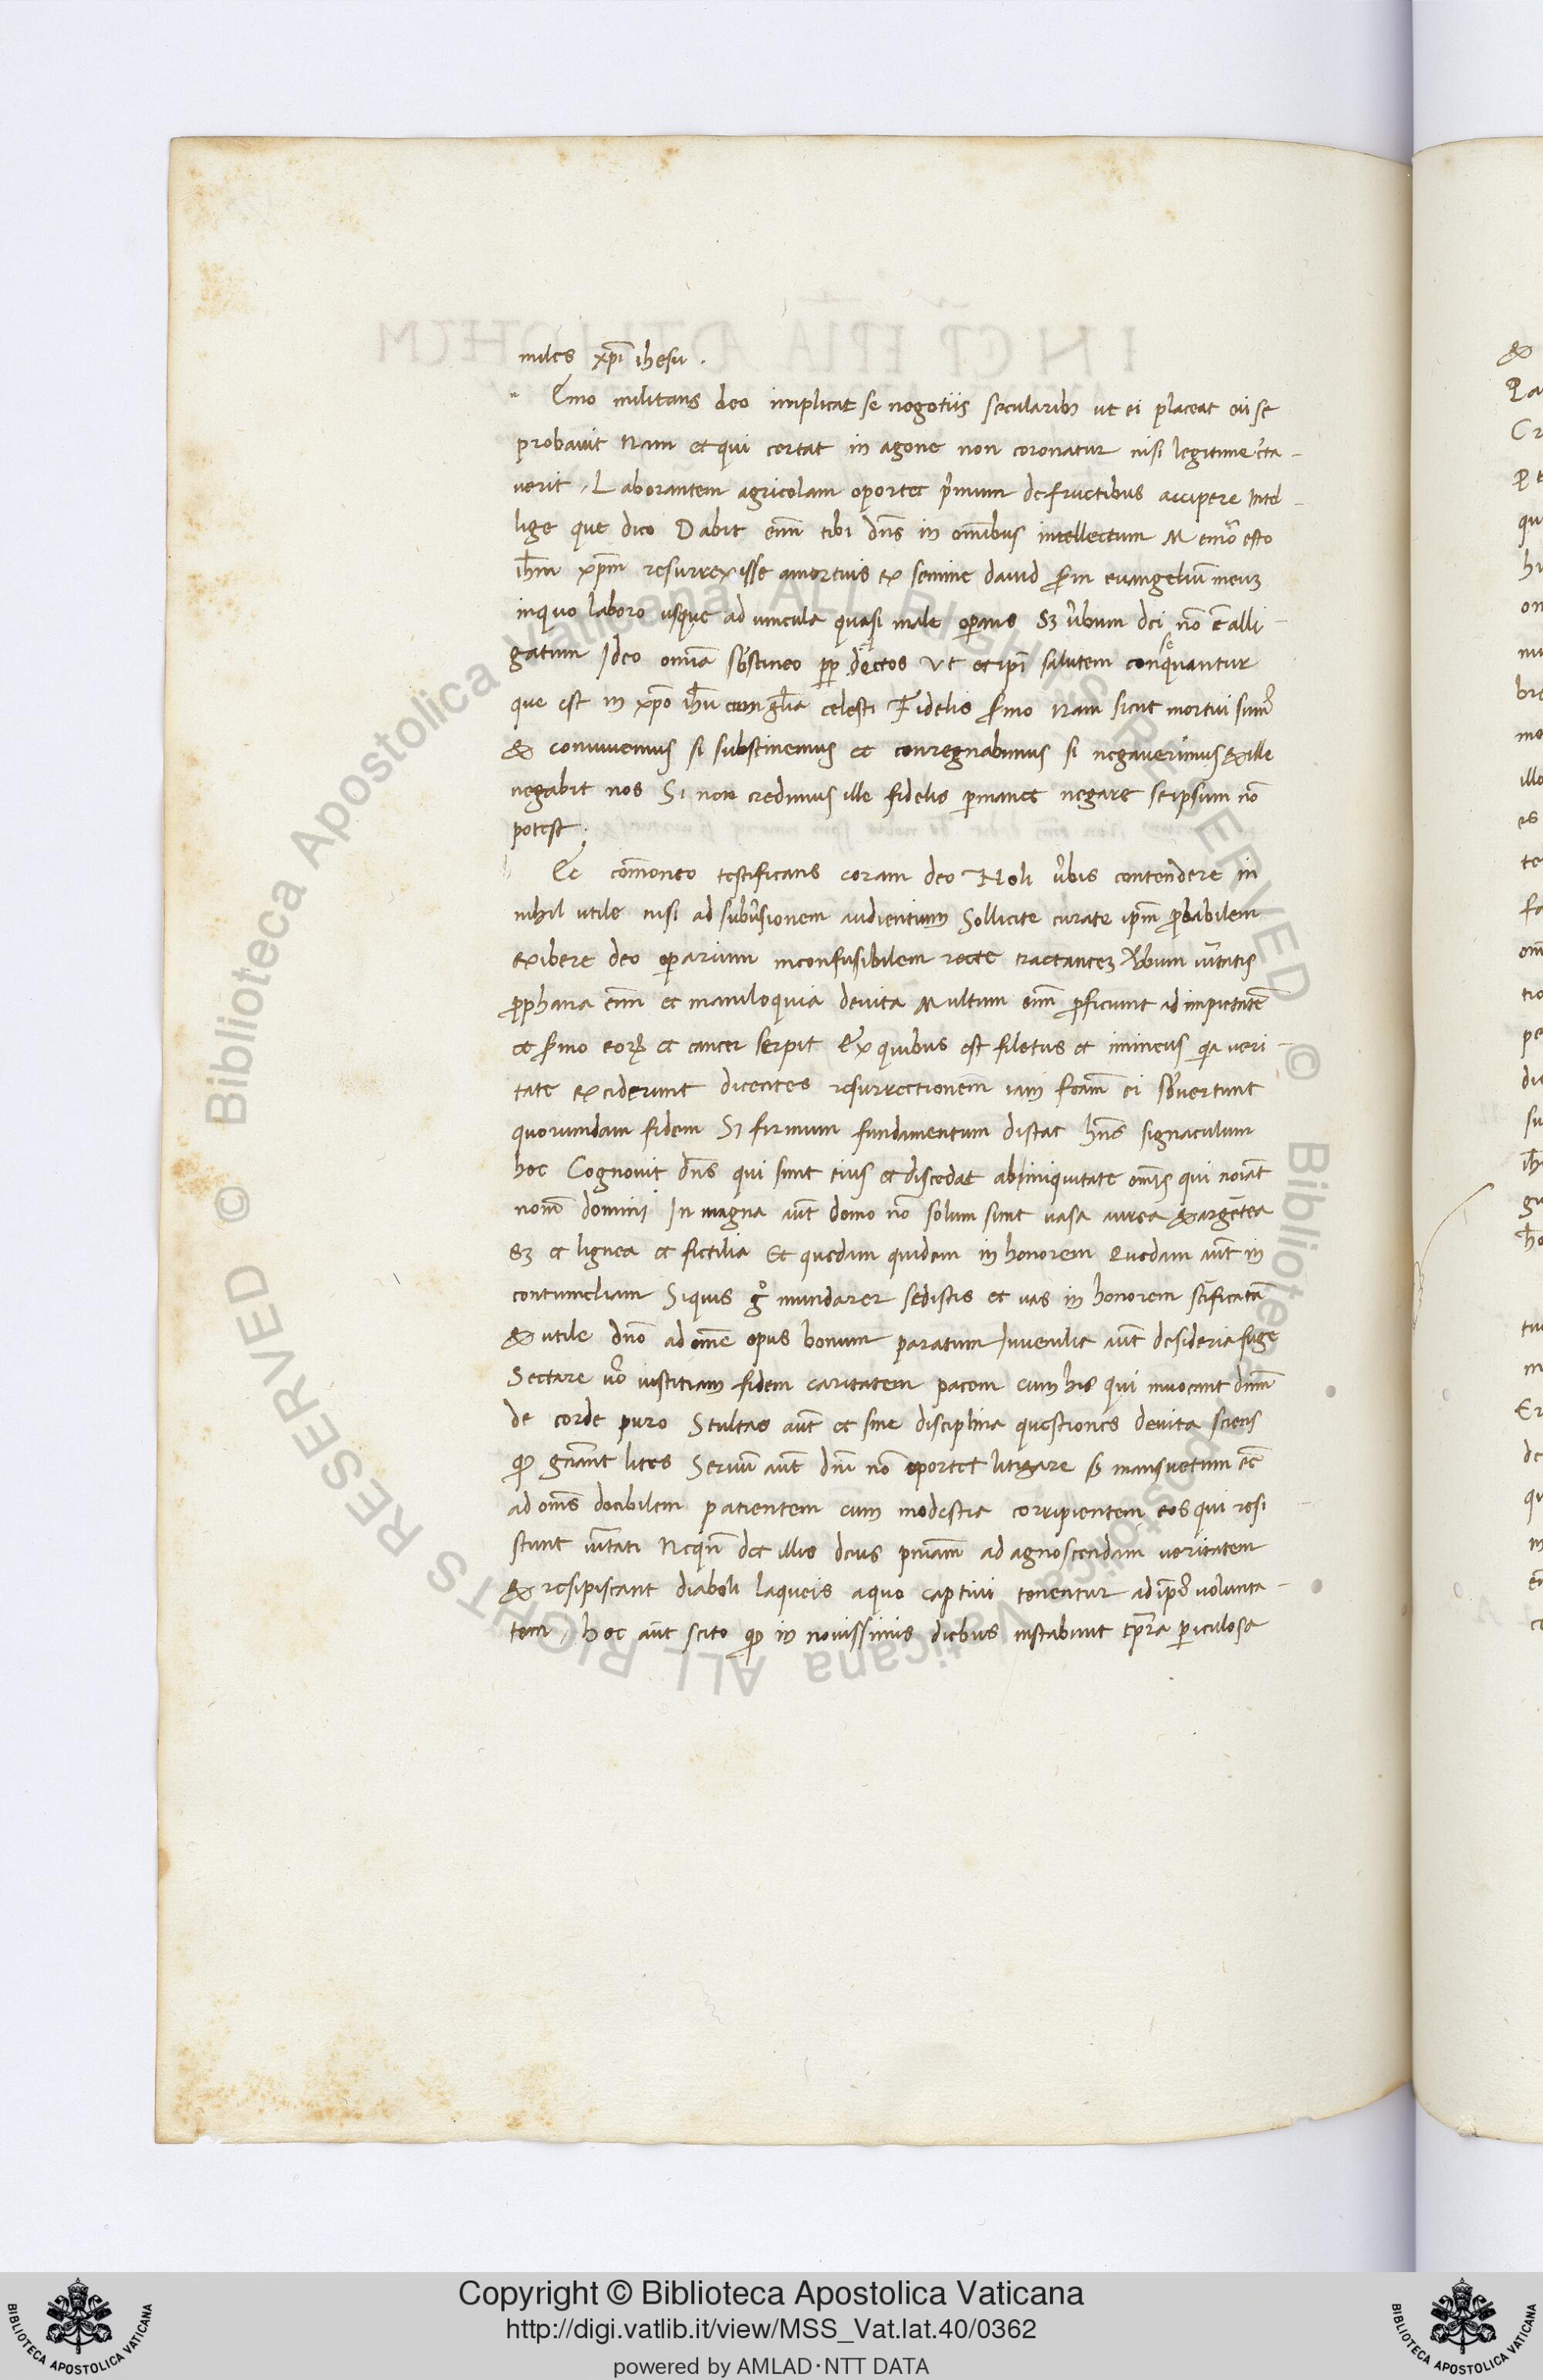 miles xp̄i ihesu .
Emo militans deo implicat se negotiis secularibꝫ ut ei placeat cui se
probauit Nam et qui certat in agone non coronatur nisi legitime certa-
uerit , Laborantem agricolam oportet p̄mum de fructibus accipere Intel-
lige que dico Dabit eni̅ tibi dn̅s in om̅ibus intellectum Memor esto
ih̅m xp̅m resurrexisse a mortuis ex semine dauid s̄m euangeliu̅ meuꝫ
in quo laboro usque ad uincula quasi male oꝑans Sꝫ ūbum dei no̅ e̅ alli-
gatum Ideo omia̅ sb̅stineo ꝓp electos Vt et ip̅i salutem consequantur
que est in xp̅o ih̅u cum gl̅ia celesti Fidelis s̄mo Nam sicut mortui sum⁹
& conuiuemus si substinemus et conregnabimus si negauerimus & ille
negabit nos Si non credimus ille fidelis ꝑmanet negare se ipsum no̅
potest .
Ec com̅oneo testificans coram deo Noli ūbis contendere in
nihil utile nisi ad subūsionem audientium Sollicite curate ip̅m ꝓbabilem
exibere deo oꝑarium inconfusibilem recte tractanteꝫ Vbum ūitatis
ꝓphana eni̅ et maniloquia deuita Multum eni̅ ꝓficiunt ad impietate̅
et s̄mo eoꝝ et cancer serpit Ex quibus est filetus et imineus qa ueri-
tate exciderunt dicentes resurrectionem iam fc̅am ei sb̅uertunt
quorumdam fidem Sꝫ firmum fundimentum distat hn̅s signaculum
hoc Cognouit dn̅s qui sunt eius et discedat ab iniquitate om̅is qui noi̅at
nom̅ domini In magna aut̅ domo no̅ solum sunt uasa aurea & arge̅tea
Sꝫ et lignea et fictilia Et quedam quidem in honorem Quedam aut̅ in
contumeliam Siquis gͦ mundarer sedistis et uas in honorem sc̅ificata̅
& utile dn̅o ad om̅e opus bonum paratum Iuuenilia aut̅ desideria fuge
Sectare uͦo iustitiam fidem caritatem pacem cum his qui inuocant dn̅m
de corde puro Stultas aut̅ et sine disciplina questiones deuita sciens
qꝫ gn̅ant lites Seruu̅ aut̅ dn̅i no̅ oportet litigare sꝫ mansuetum ee̅
ad om̅s docibilem patientem cum modestia corripientem eos qui resi-
stunt ūitati Nequn̅ det illis deus pn̅iam ad agnoscendam ueritatem
& resipiscant diaboli laqueis a quo captiui tenentur ad ip̅i⁹ uolunta-
tem , hoc aut̅ scito qꝫ in nouissimis diebus instabunt tp̅ra ꝑiculosa
© Biblioteca Apostolica Vaticana ALL RIGHTS RESERVED
© Biblioteca Apostolica Vaticana ALL RIGHTS RESERVED
Copyright © Biblioteca Apostolica Vaticana
http://digi.vatlib.it/view/MSS_Vat.lat.40/0362
powered by AMLAD·NTT DATA
BIBLIOTECA APOSTOLICA VATICANA
BIBLIOTECA APOSTOLICA VATICANA